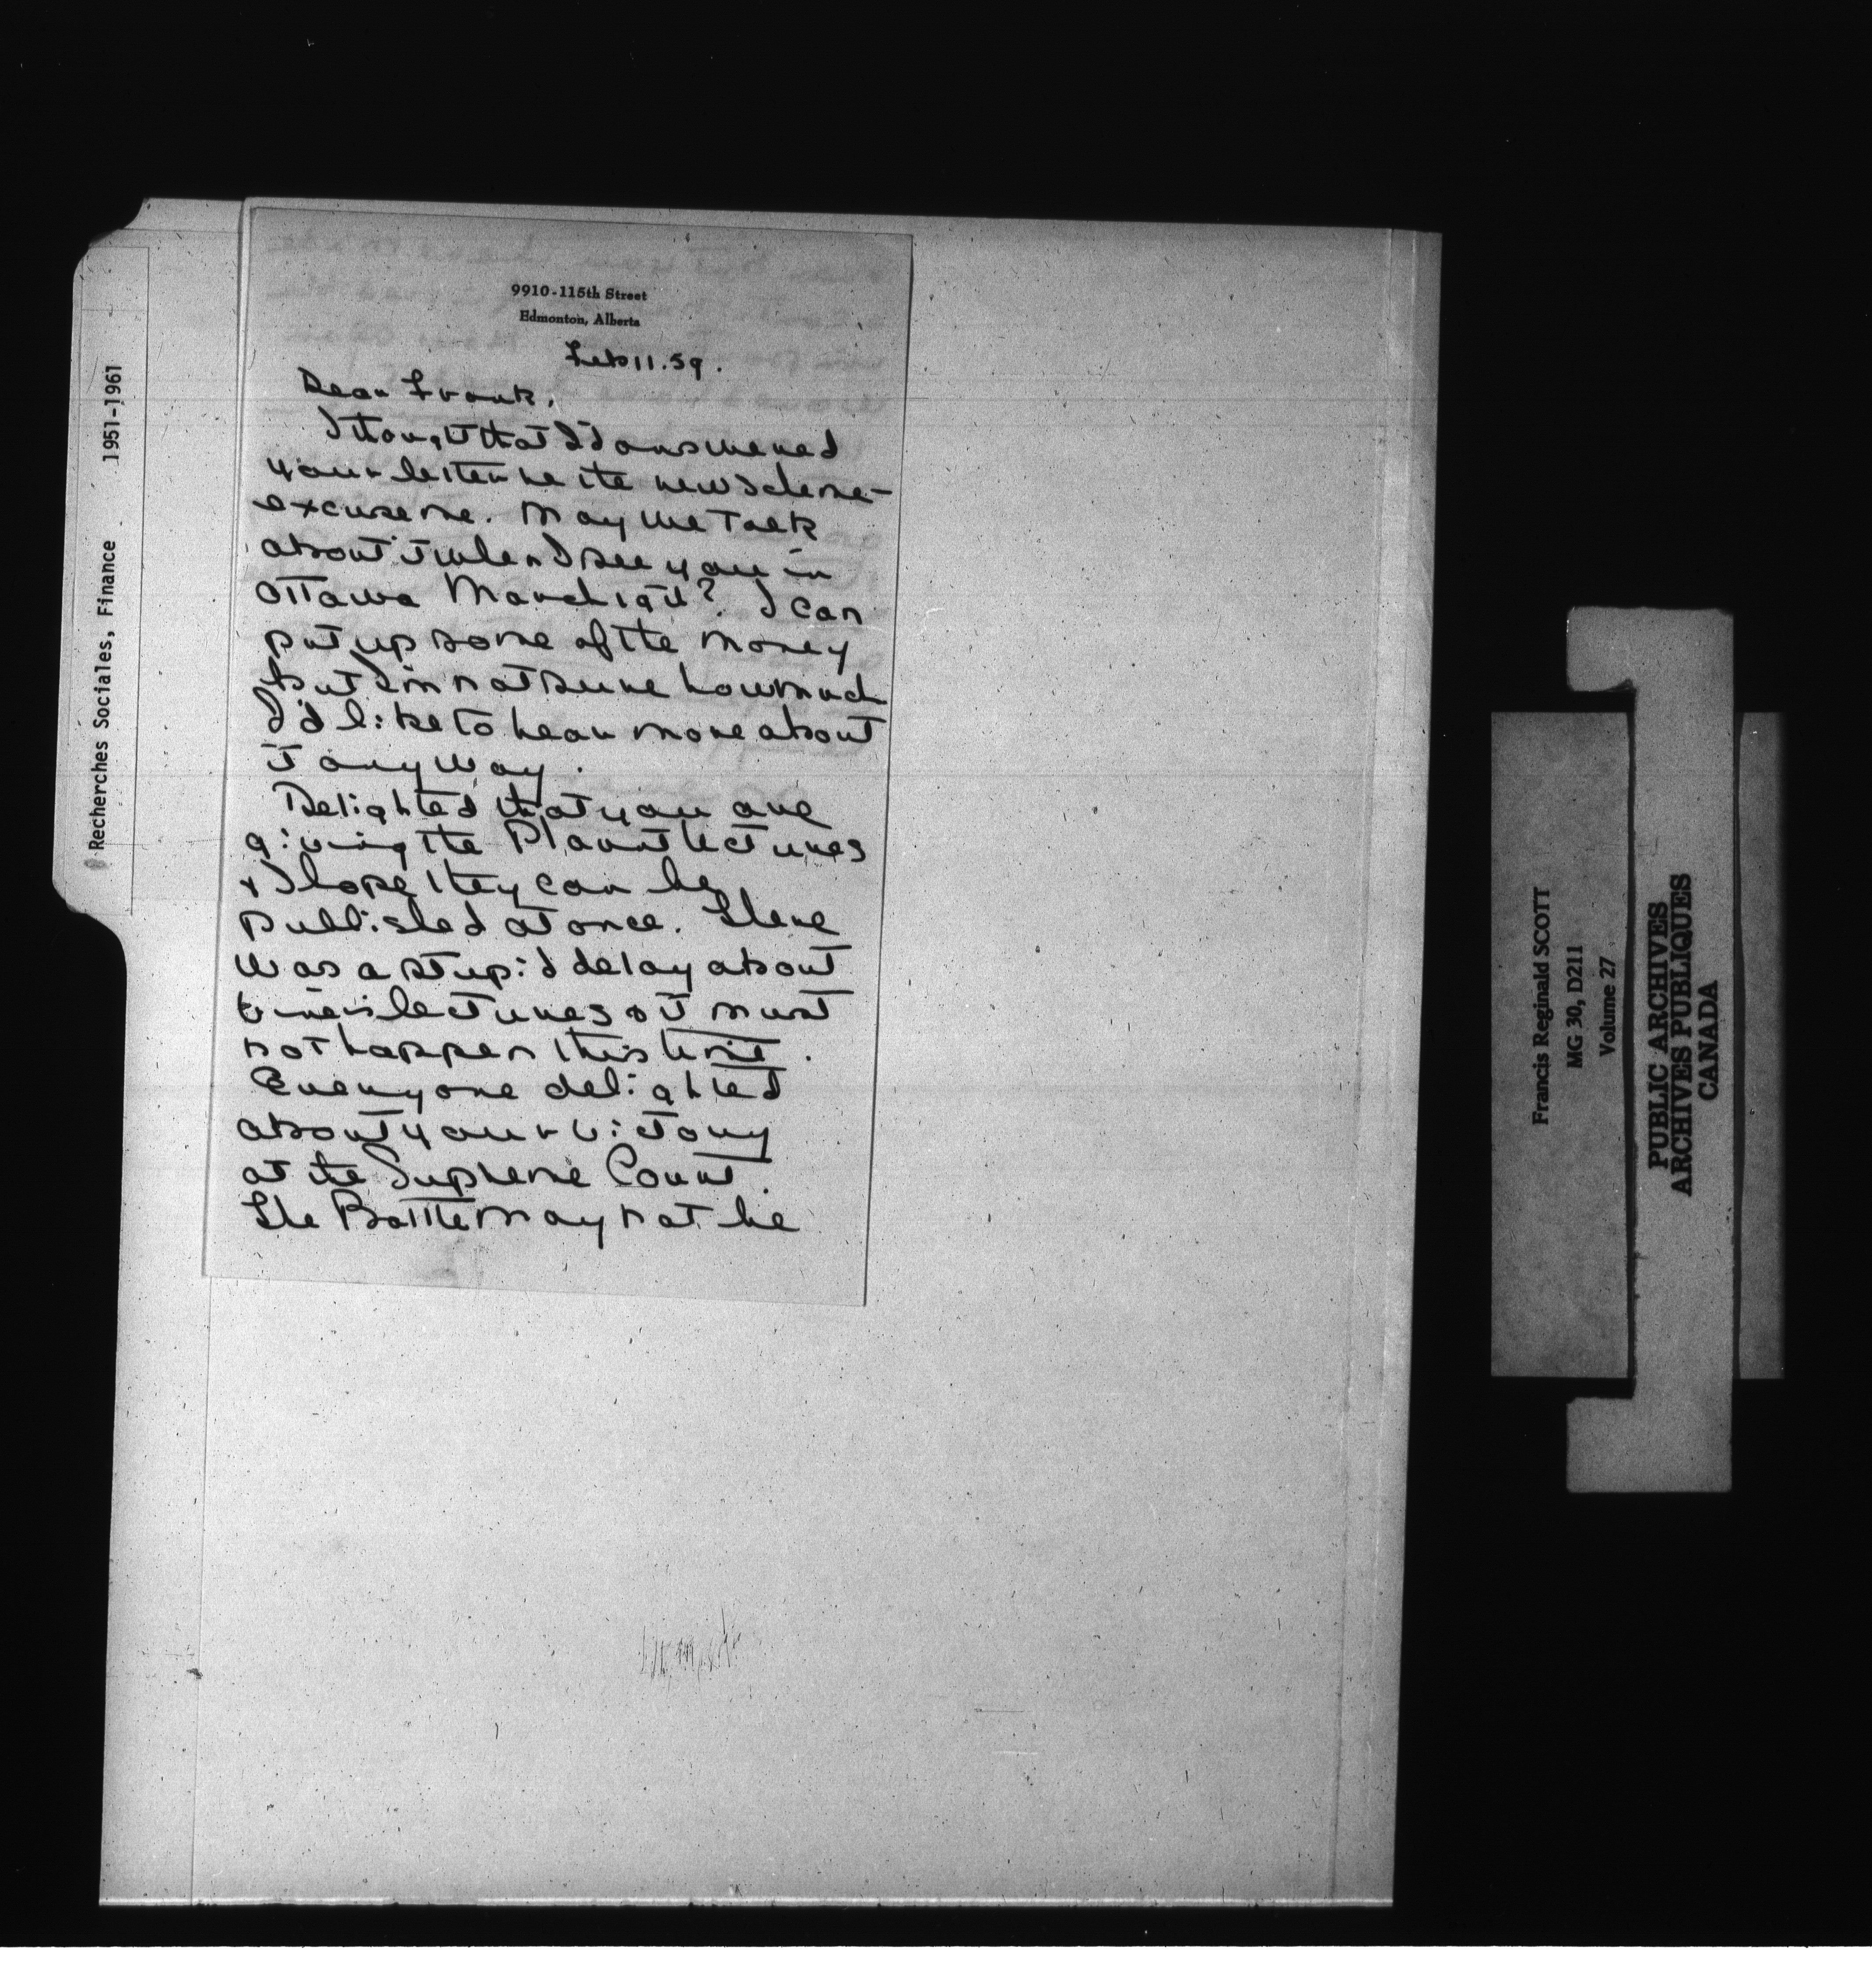 9910-115th Street
Edmonton, Alberta
Feb 11. 59.
Dear Frank,
I thought that I'd answered
your letter re the new scheme -
excuse me. May we talk
about it when I see you in
Ottawa March 19th? I can
put up some of the money
but I'm not sure how much
I'd like to hear more about
it anyway.
Delighted that you are
giving the Plaunt lectures
& I hope they can be
published at once. There
was a stupid delay about
lectures & it must
not happen this time.
Everyone delighted
about your victory
at the Supreme Court.
The Battle may not be
Recherches Sociales, Finance 1951-1961
Francis Reginald SCOTT
MG 30, D211
Volume 27
PUBLIC ARCHIVES
ARCHIVES PUBLIQUES
CANADA